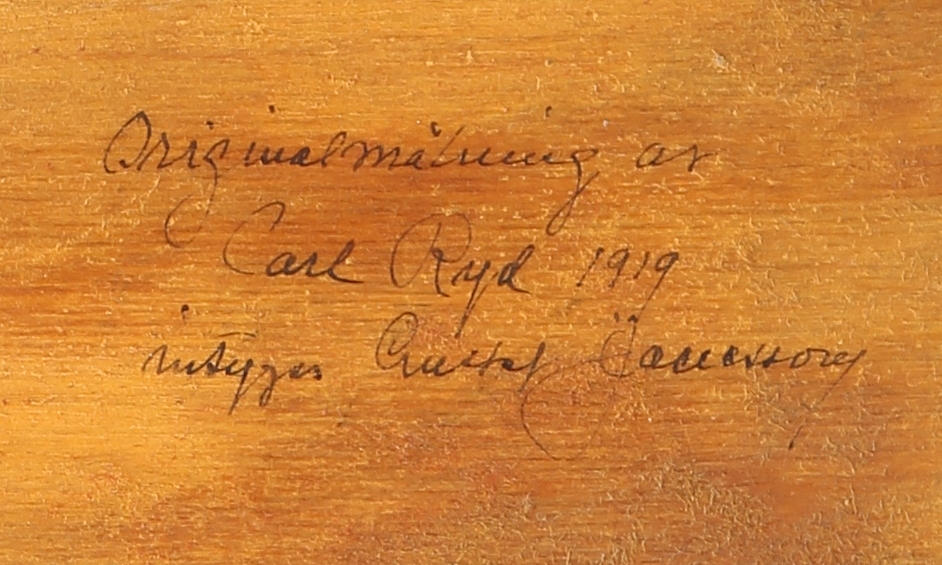 Originalmålning av
Carl Ryd 1919
intygas Gustaf